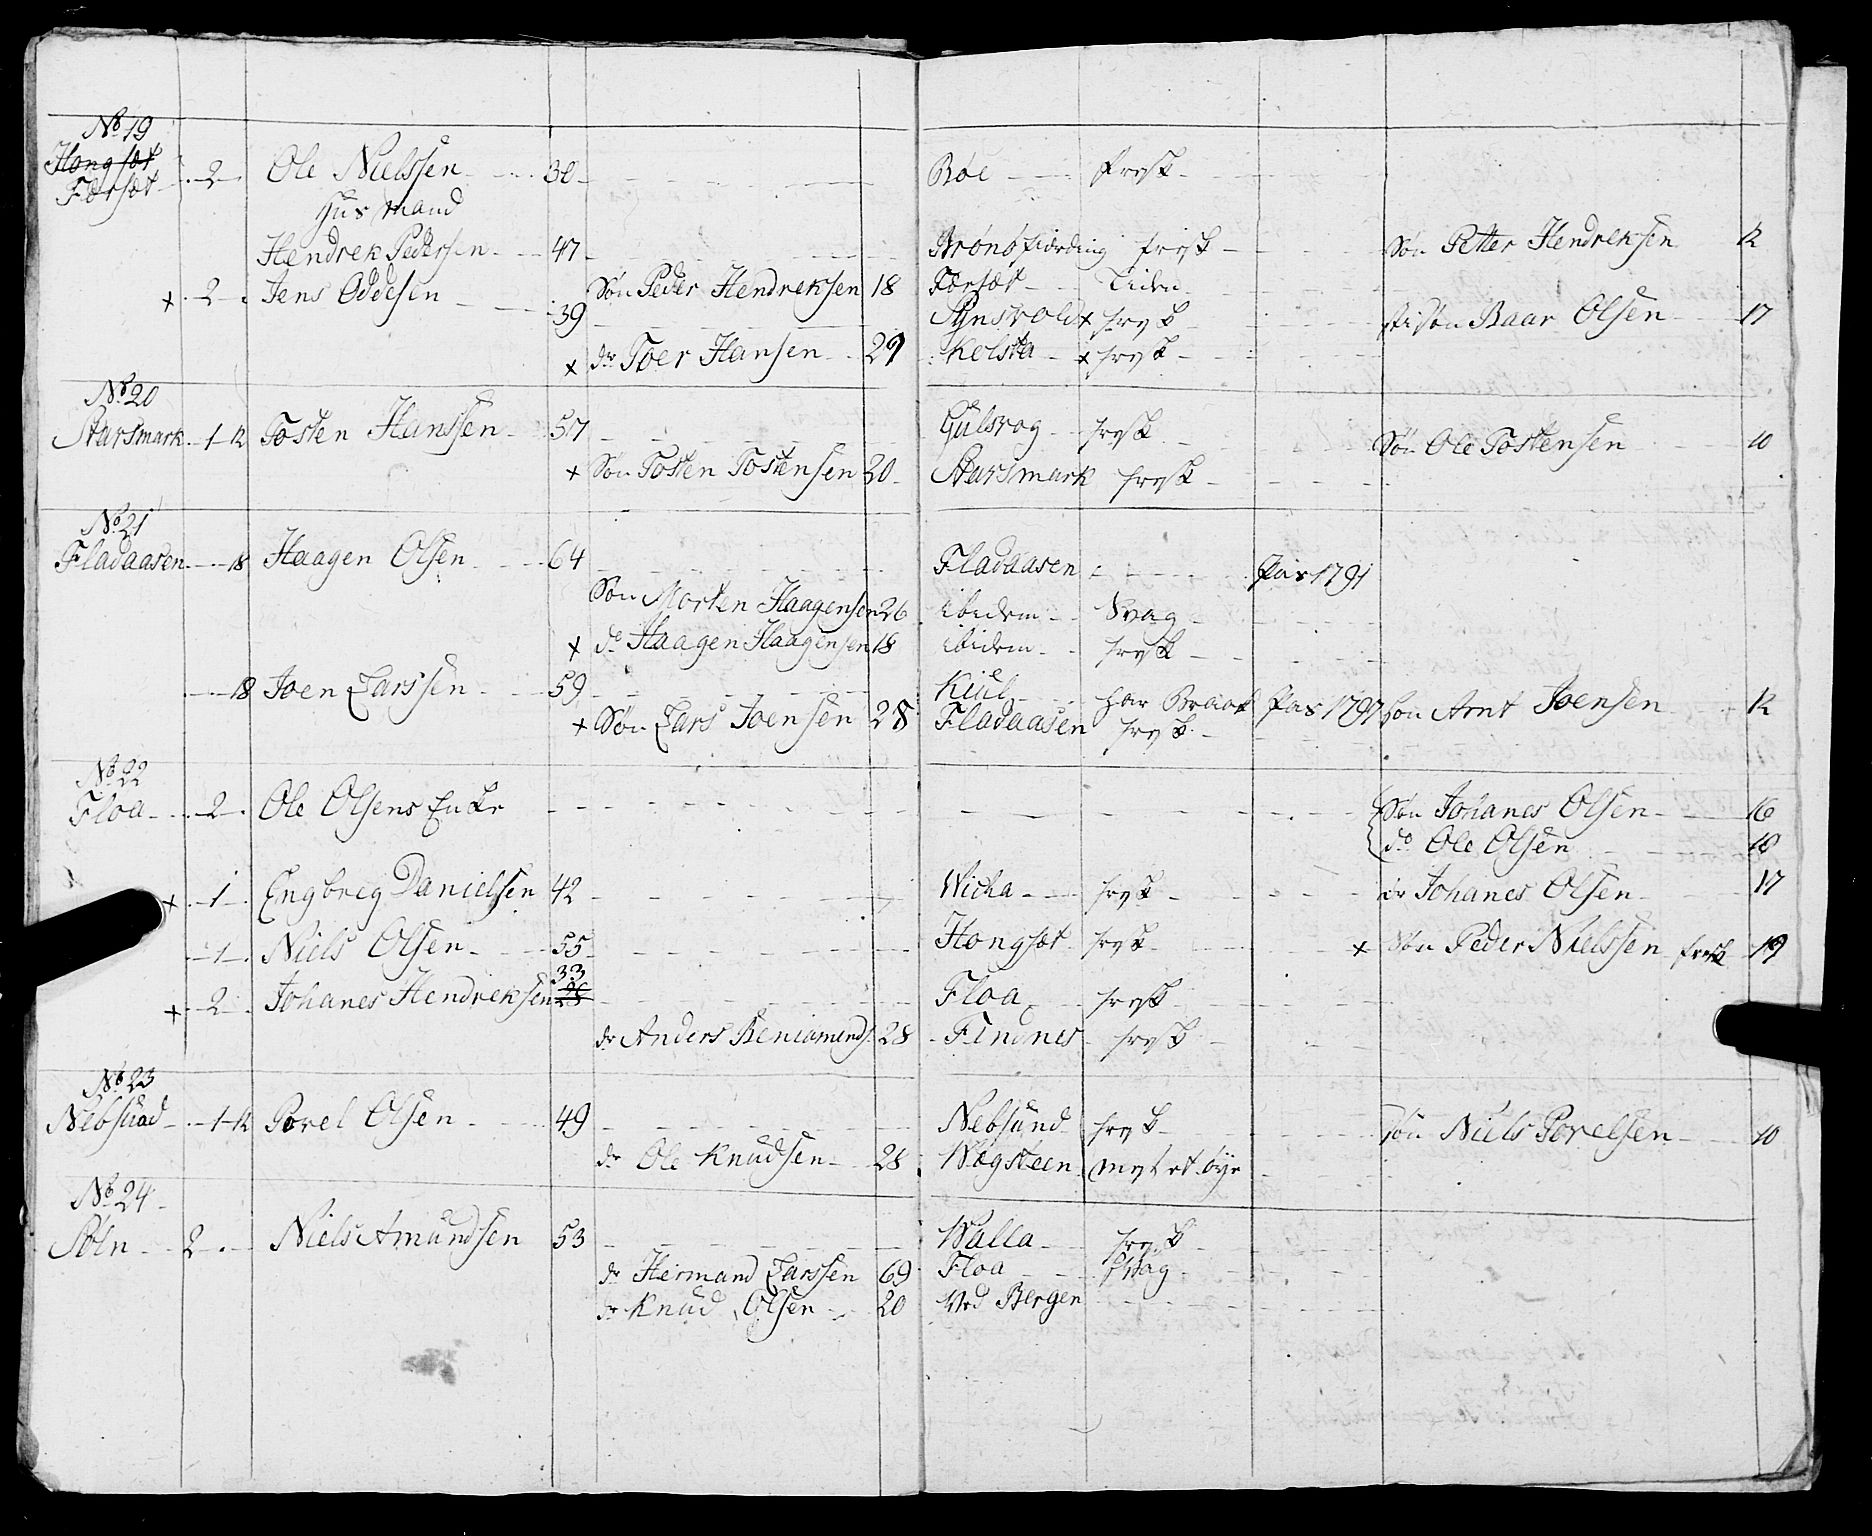 No 19
Hongsæt
Færsæt - 2 - Ole Nielssen 30 Bøe frisk
Huusmand
Hendrek Pedersen 47 Brønøfiording frisk Søn Petter Hendreksen 12
Søn Peder Hendreksen 18 Færsæt Liden
x 2 Jens Oddesen 39 x frisk Stifsøn Baar Olsen 17
x dr Toer Hansen 29 Kolsta x frisk
No 20
Starsmark 1-12 Tosten Hanssen 57 Gulsvog frisk Søn Ole Tostensen 10
x Søn Tosten Tostensen 20 Starsmark frisk
No 21
Fladaasen 18 Haagen Olsen 64 Fladaasen Pas 1791
Søn Morten Haagensen 26 ibidem Svag
x do Haagen Haagensen 18 ibidem frisk
18 Joen Larssen 59 Kiul har Braak Pas 1797 Søn Arnt Joensen 12
x Søn Lars Joensen 28 Fladaasen frisk
No 22
Floa 2 Ole Olsens Enke Søn Johanes Olsen 16
do Ole Olsen 10
x 1 Engbreg Danielsen 42 Wicha frisk dr Johanes Olsen 17
1 Niels Olsen 55 Hongsæt frisk x Søn Peder Nielssen frisk 19
33
x 2 Johanes Hendreksen 28 Floa frisk
dr Anders Beniamends. 28 Findnes frisk
No 23
Nebsund 1-12 Povel Olsen 49 Nebsund frisk Søn Niels Povelsen 10
dr Ole Knudsen 28 Wægsteen myst et øye
No 24
Søln 2 Niels Amundsen 53 Walla frisk
dr Hermand Larssen 69 Floa Svag
dr Knud Olsen 20 Ved Bergen